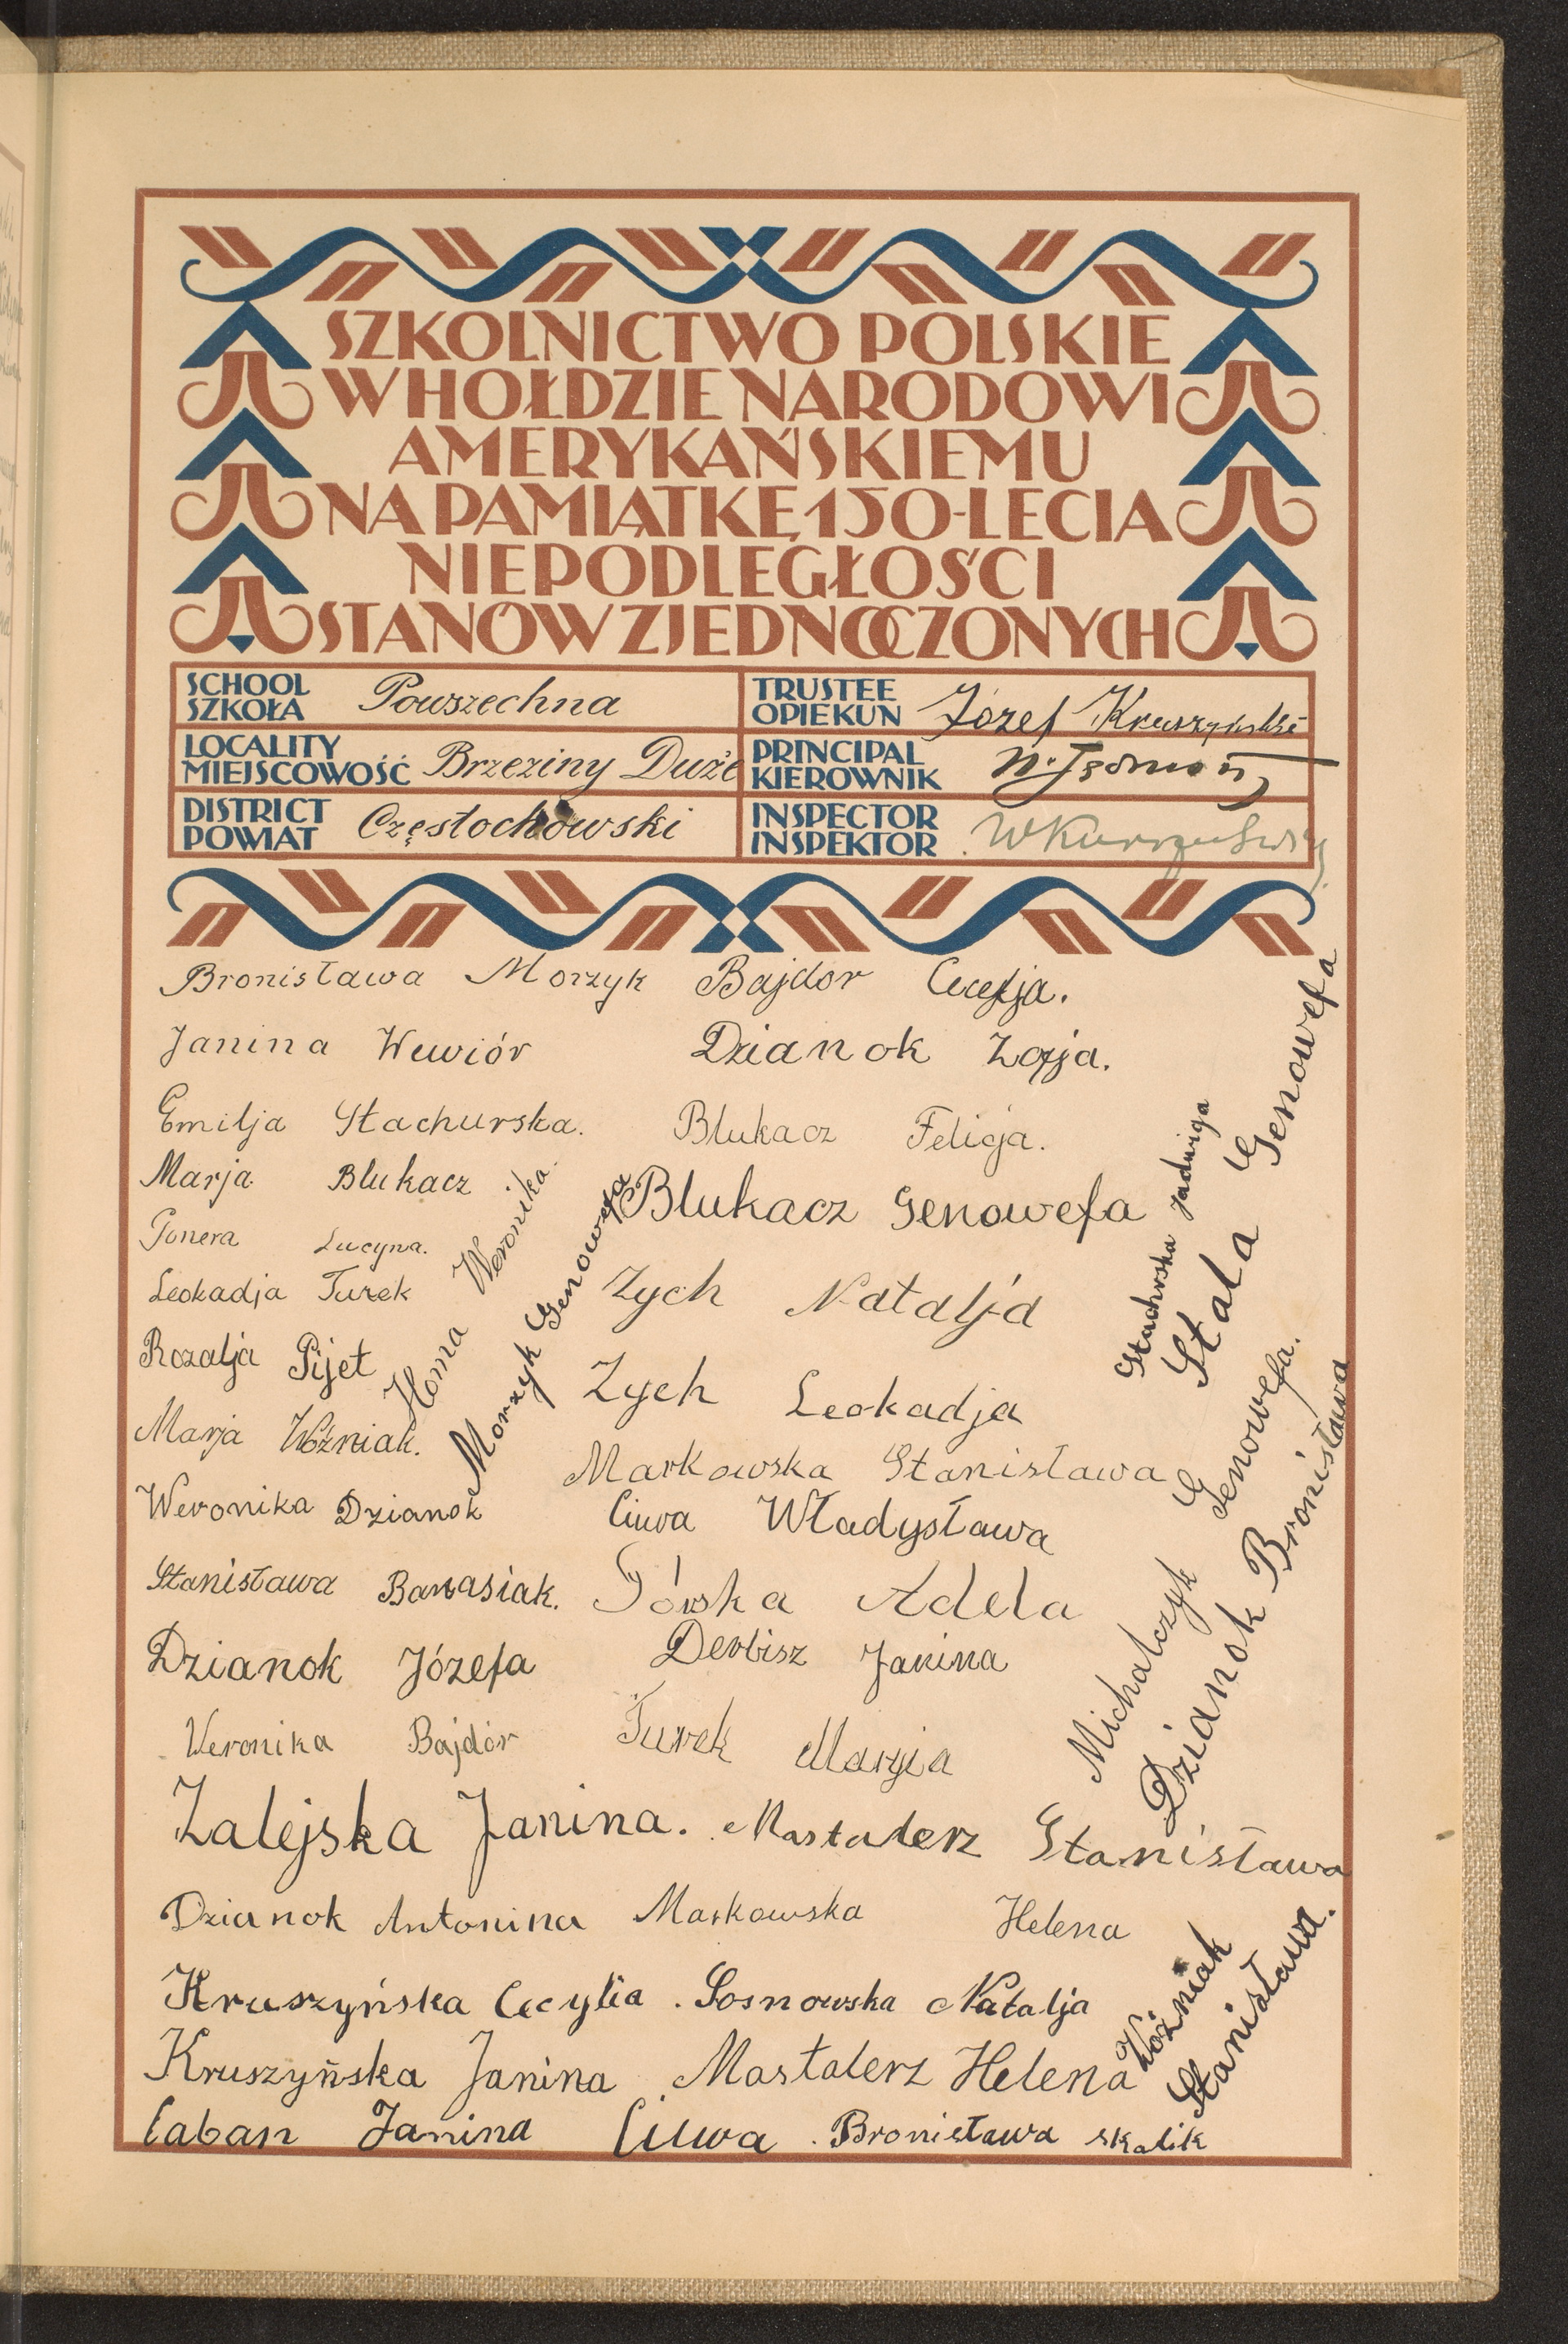 SZKOLNICTWO POLSKIE
W HOŁDZIE NARODOWI
AMERYKAŃSKIEMU
NA PAMIĄTKĘ 150-LECIA
NIEPODLEGŁOŚCI
STANÓW ZJEDNOCZONYCH
SCHOOL
SZKOŁA Powszechna
TRUSTEE
OPIEKUN Józef Kruszyński
LOCALITY
MIEJSCOWOŚĆ Brzeziny Duże
PRINCIPAL
KIEROWNIK
DISTRICT
POWIAT Częstochowski
INSPECTOR
INSPEKTOR
Bronisława Morzyk
Janina Wewiór
Emilja Stachurska.
Marja Blukacz
Gonera Lucyna.
Leokadja Turek
Rozalja Pijet
Marja Woźniak.
Weronika Dzianok
Stanisława Banasiak.
Dzianok Józefa
Weronika Bajdór
Zalejska Janina.
Dzianok Antonina
Kruszyńska Cecylia.
Kruszyńska Janina
Caban Janina
Homa Weronika
Morzyk Genowefa
Bajdor Cecylja.
Dzianok Zofja.
Blukacz Felicja.
Blukacz Genowefa
Zych Natalja
Zych Leokadja
Markowska Stanisława
Ciura Władysława
Górska Adela
Derbisz Janina
Turek Marjia
Mastalerz Stanisława
Markowska Helena
Sosnowska Natalja
Mastalerz Helena
Bronisława Skalik
Stachurska Jadwiga
Stala Genowefa
Michalczyk Genowefa.
Dzianok Bronisława
Woźniak
Stanisława.